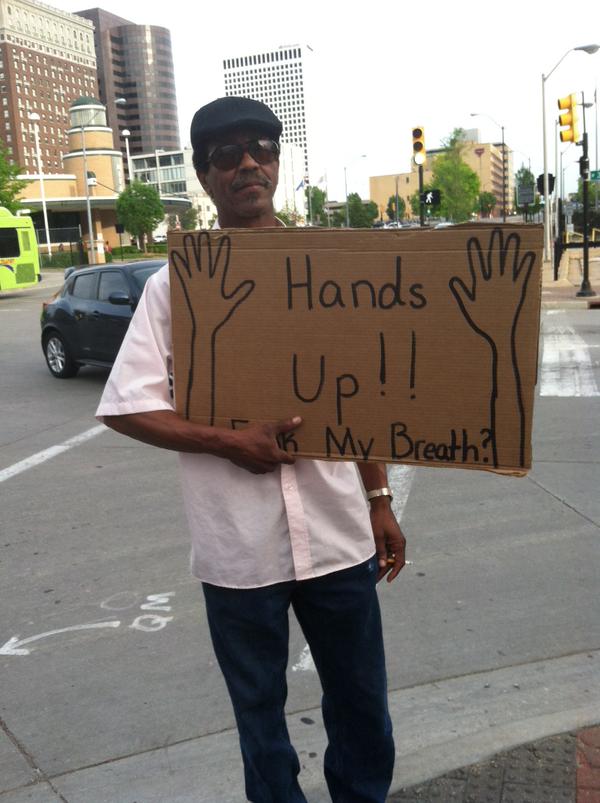 Hands
Up!!
My Breath?